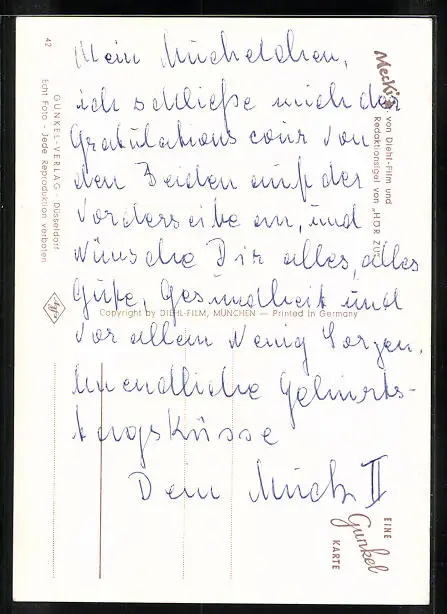 Mein Muckelchen,
ich schließe mich der
Gratulationscour von
den Beiden auf der
Vorderseite an, und
wünsche Dir alles, alles
Gute, Gesundheit und
vor allem wenig Sorgen.
Unendliche Geburts-
tagsküsse
Dein Muck II
42
GUNKEL-VERLAG · Düsseldorf
Echt Foto - Jede Reproduktion verboten
Mecki's von Diehl-Film und
Redaktionsigel von „HÖR ZU
Copyright by DIEHL-FILM, MÜNCHEN — Printed in Germany
EINE
Gunkel
KARTE